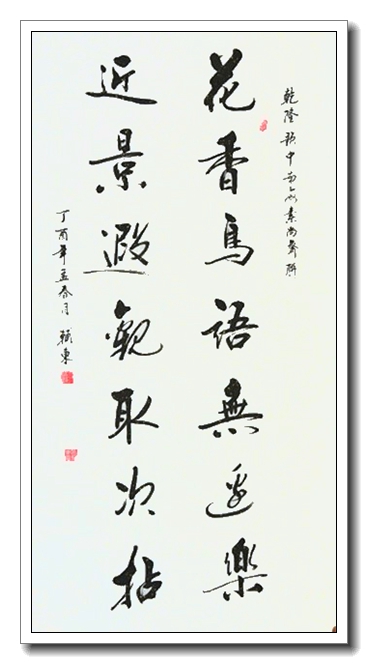 乾隆題中南海素尚齋聯
花香鳥語無邊樂
近景遐觀取次拈
丁酉年孟春月 東